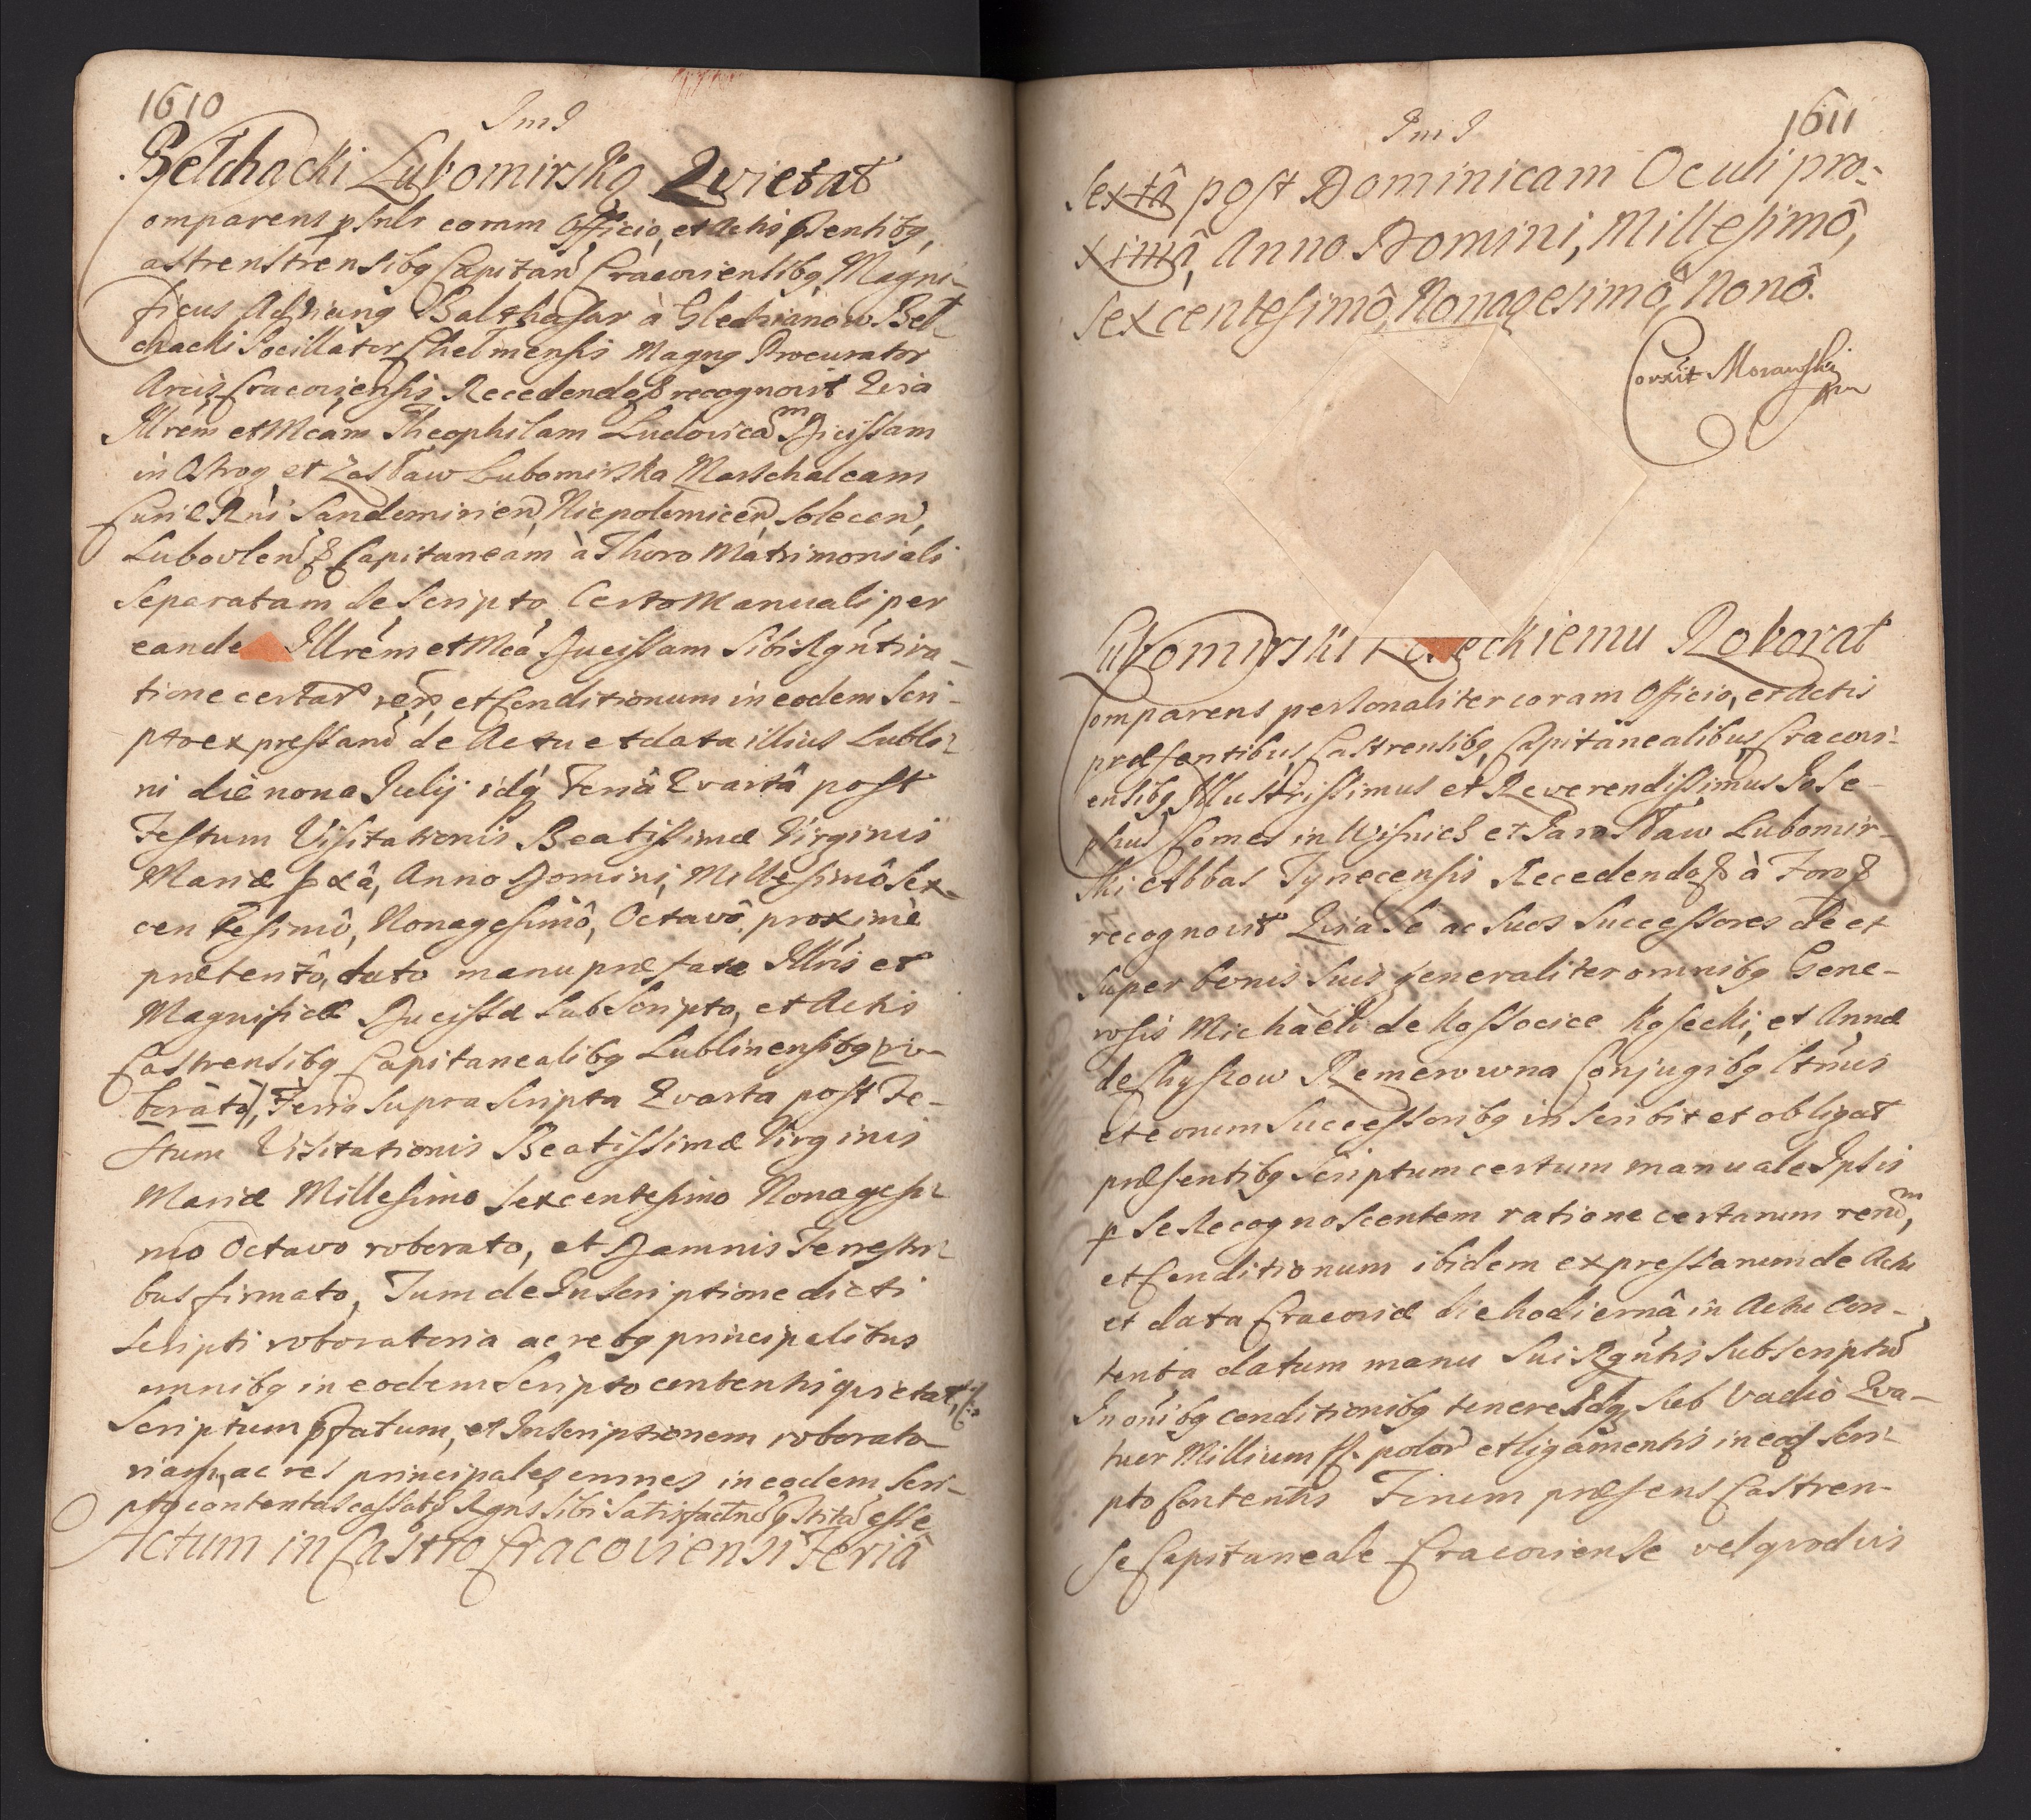 1610
Belchacki Lubomirska Qvietat
omparens psnlr coram Officio, et Actis psentibq,
astrenstrensibq Capitan Cracoviensibq Magni-
ficus Balthasar à Glechianow Bel-
chacki Pocillator Chelmensis Magnq Procurator
Arcis Cracoviensis Recedendo recognovit Qvia
Illrem et Mcam Theophilam Ludovicam Ducissam
in Ostrog et Zasław Lubomirska Marschalcam
Curiæ Rni Sandomirien, Niepolomicen, Solecen,
Lubovlen Capitaneam à Thoro Matrimoniali
Separatam de Scripto Certo Manuali per
eande Illrem et Mcá Ducissam Sibi Rgnti ra-
tione certar rerr et Conditionum in eodem Scri-
pto expressarr de Actu et data illius Lubli-
ni die nona Julij idq Feriâ Qvartâ post
Festum Visitationis Beatissimæ Virginis
Mariæ pxâ, Anno Domini, Millesimô Sex-
centesimô, Nonagesimô, Octavô, proximè
præteritô, dato manu præfatæ Illris et
Magnificæ Ducissæ Subscripto, et Actis
Castrensibq Capitanealibq Lublinensibq ro-
boràto, Feria supra scripta Qvarta post Fe-
stum Visitationis Beatissimæ Virginis
Mariæ Millesimo Sexcentesimo Nonagesi-
mo Octavo roborato, et Damnis Terrestri-
bus firmato, Tum de Inscriptione dicti
Scripti roboratoria ac rebq principalibus
omnibq in eodem Scripto contentis qvietat,
Scriptum pfatum, et Inscriptionem roborato-
riam, ac res principales omnes in eodem Scri-
pto contentas cassat, Rgns sibi Satisfactum esse
Actum in Castro Cracoviensi Feriâ
1611
Sextâ post Dominicam Oculi pro-
ximâ, Anno Domini, Millesimô,
Sexcentesimô, Nonagesimô, Nonô.
Corxit Morawski
Lubomirski eckiemu Roborat
omparens personaliter coram Officio, et Actis
præsentibus, Castrensibq, Capitanealibus Cracovi-
ensibq Illustrissimus et Reverendissimus Jose-
phus Comes in Wisnicz et Jarosław Lubomir-
ski Abbas Tynecensis Recedendo à Foro
recognovit Qvia Se ac Suos Successores de et
super bonis suis generaliter omnibq Gene-
rosis Michaeli de Kossocice Kosecki, et Annæ
de Chyszow Remerowna Conjugibq
et eorum Successoribq inscribit et obligat
præsentibq Scriptum certum manuale Ipsis
p Se Recognoscentem ratione certarum rerum,
et Conditionum ibidem expressarum de Actu
et data Cracoviæ die hodiernâ in Actu Con-
tenta datum manu Sui Rgntis Subscriptu
In oibq conditionibq tenere Idq Sub Vadio Qva-
tuor Millium ff. polor et ligamentis in eod Scri-
pto Contentis Forum præsens Castren-
se Capitaneale Cracoviense vel qvodvis